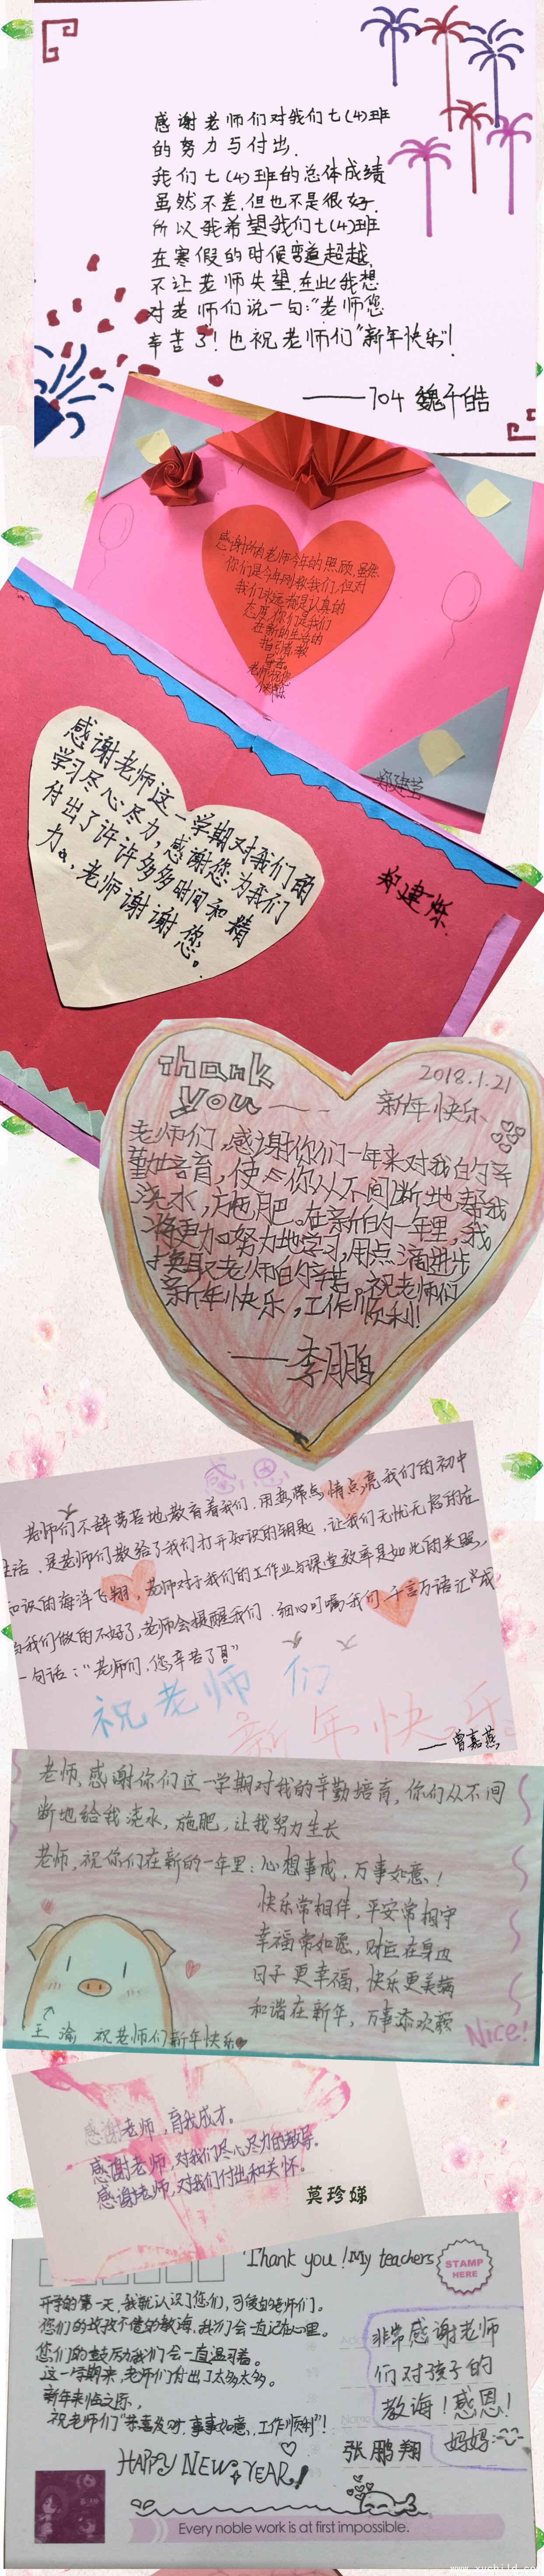 感谢老师们对我们七(4)班
的努力与付出.
我们七(4)班的总体成绩
虽然不差,但也不是很好.
所以我希望我们七(4)班
在寒假的时候弯道超越,
不让老师失望.在此我想
对老师们说一句:"老师您
辛苦了!也祝老师们"新年快乐"!
——704 魏千皓
感谢所有老师今年的照顾,虽然
你们是今年刚教我们,但对
我们永远都是认真的
态度,你们是我们
在新的生活的
指引者,教
导者.
老师祝您
快乐
郑建莹
感谢老师这一学期对我们的
学习尽心尽力,感谢您为我们
付出了许许多多时间和精
力。,老师谢谢您。
郑建烁.
Thank
you
2018.1.21
新年快乐
老师们,感谢你们一年来对我的辛
勤培育,使
浇水,施肥。在新的一年里,我
将更加努力地学习,用点滴进步
换取老师的辛苦。祝老师们
新年快乐,工作顺利!
——李鹏
感恩
老师们不辞劳苦地教育着我们,用热点情点亮我们的初中
生活,是老师们教给了我们打开知识的钥匙,让我们无忧无虑的在
知识的海洋飞翔,老师对于我们的工作业与课堂效率是如此的关照,
当我们做的不好了,老师会提醒我们,细心叮嘱我们,千言万语汇成
一句话:"老师们,您辛苦了!"
祝老师们
新年快乐。
——曾嘉燕
老师,感谢你们这一学期对我的辛勤培育,你们从不间
断地给我浇水,施肥,让我努力生长
老师,祝你们在新的一年里:心想事成,万事如意!
快乐常相伴,平安常相守
幸福常如愿,财运在身边
日子更幸福,快乐更美满
和谐在新年,万事添欢颜
Nice!
王渝 祝老师们新年快乐
感谢老师,育我成才。
感谢老师,对我们尽心尽力的教导.
感谢老师,对我们付出和关怀。
莫珍娣
Thank you!My teachers
STAMP
HERE
开学的第一天,我就认识了您们,可爱的老师们。
您们的孜孜不倦的教诲,我们会一直记在心里。
您们的鼓励我们会一直温习着。
这一学期来,老师们付出了太多太多。
新年来临之际,
祝老师们"恭喜发财,事事如意,工作顺利"!
HAPPY NEW YEAR!
非常感谢老师
们对孩子的
教诲!感恩!
妈妈:
张鹏翔
Every noble work is at first impossible.
www.xychild.com